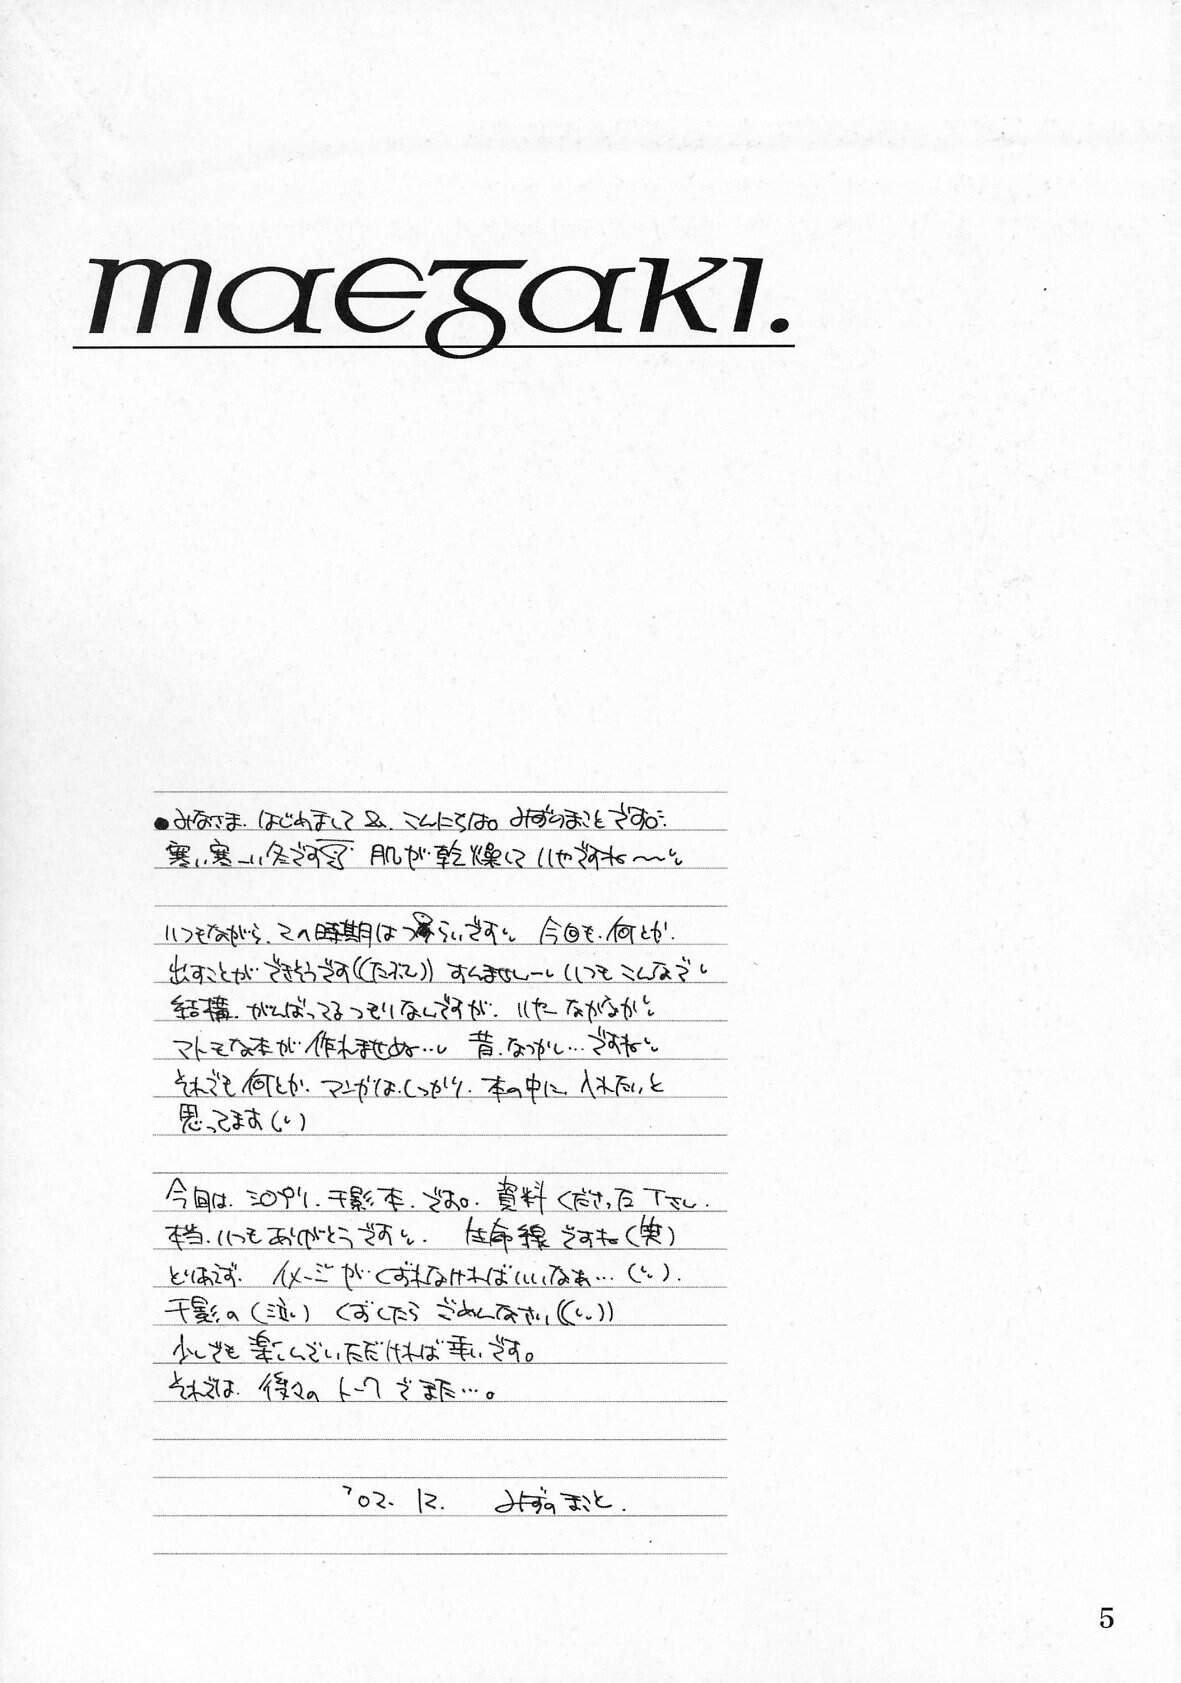 maegaki.
●みなさま、はじめまして&、こんにちは。みずのまことです。
寒い寒ーい冬です 肌が乾燥して いやですね〜〜
いつもながら、この時期は つらいです 今回も、何とか
出すことが できそうです((たぶん)) すんませんーいつもこんなで
結構、がんばってるつもりなんですが、いやーなかなか
マトモな本が 作れませぬ… 昔、なつかし…ですね
それでも 何とか、マンガは、しっかり、本の中に、入れたいと
思ってます(い)
今回は、シスプリ、千影本、です。資料くださった下さん、
本当、いつもありがとうです 生命線ですね(笑)
とりあえず、イメージが くずれなければいいなぁ…(い)
千影の(泣) くずしたら ごめんなさい((い))
少しでも 楽しんでいただければ 幸いです。
それでは、後々の トークで また…。
'02.12. みずのまこと.
5